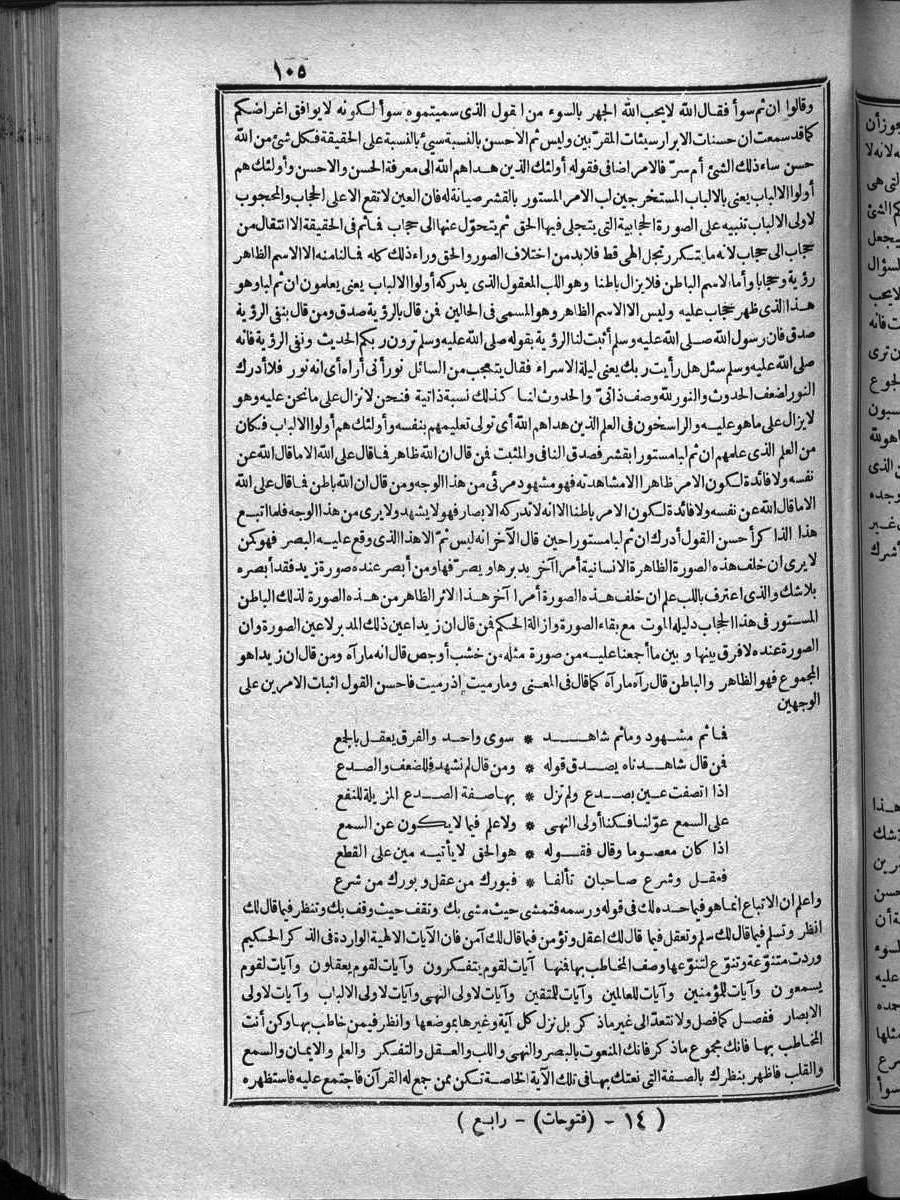 ١٠٥
وقالوا ان ثم سوأ فقال الله لا يحب الله الجهر بالسوء من القول الذى سميتموه سوأ لكونه لا يوافق اغراضكم
كما قد سمعت ان حسنات الابرار سيئات المقربين وليس ثم الا حسن بالنسبة سيئ بالنسبة على الحقيقة فكل شئ من الله
حسن ساء ذلك الشئ أم سرّ فالامر اضافى فقوله أولئك الذين هداهم الله الى معرفة الحسن والاحسن وأولئك هم
أولوا الالباب يعنى بالالباب المستخرجين لب الامر المستور بالقشر صيانة له فان العين لا تقع الا على الحجاب والمحجوب
لاولى الالباب تنبيه على الصورة الحجابية التى يتجلى فيها الحق ثم يتحوّل عنها الى حجاب فما ثم فى الحقيقة الا انتقال من
حجاب الى حجاب لانه ما يتكرر تجل الهى قط فلا بد من اختلاف الصور والحق وراء ذلك كله فما لنا منه الا الاسم الظاهر
رؤية وحجابا وأما الاسم الباطن فلا يزال باطنا وهو اللب المعقول الذى يدركه أولوا الالباب يعنى يعلمون ان ثم لبا وهو
هذا الذى ظهر حجاب عليه وليس الا الاسم الظاهر وهو المسمى فى الحالين فمن قال بالرؤية صدق ومن قال بنفى الرؤية
صدق فان رسول الله صلى الله عليه وسلم أثبت لنا الرؤية بقوله صلى الله عليه وسلم ترون ربكم الحديث ونفى الرؤية فانه
صلى الله عليه وسلم سئل هل رأيت ربك يعنى ليلة الاسراء فقال يتعجب من السائل نور أنى أراه أى انه نور فلا أدرك
النور لضعف الحدوث والنور لله وصف ذاتىّ والحدوث لنا كذلك نسبة ذاتية فنحن لا نزال على ما نحن عليه وهو
لا يزال على ما هو عليه والراسخون فى العلم الذين هداهم الله أى تولى تعليمهم بنفسه وأولئك هم أولوا الالباب فكان
من العلم الذى علمهم ان ثم لبا مستورا بقشر فصدق النافى والمثبت فمن قال ان الله ظاهر فما قال على الله الا ما قال الله عن
نفسه ولا فائدة لكون الامر ظاهرا الا مشاهدته فهو مشهود مرئى من هذا الوجه ومن قال ان الله باطن فما قال على الله
الا ما قال الله عن نفسه ولا فائدة لكون الامر باطنا الا انه لا تدركه الابصار فهو لا يشهد ولا يرى من هذا الوجه فلما اتبع
هذا الذاكر أحسن القول أدرك ان ثم لبا مستورا حين قال الآخر انه ليس ثم الا هذا الذى وقع عليه البصر فهو كمن
لا يرى ان خلف هذه الصورة الظاهرة الانسانية أمرا آخر يدبرها ويصرّفها ومن أبصر عنده صورة زيد فقد أبصره
بلا شك والذى اعترف باللب علم ان خلف هذه الصورة أمرا آخر هذا الاثر الظاهر من هذه الصورة لذلك الباطن
المستور فى هذا الحجاب دليله الموت مع بقاء الصورة وازالة الحكم فمن قال ان زيدا عين ذلك المدبر لا عين الصورة وان
الصورة عنده لا فرق بينها وبين ما أجمعنا عليه من صورة مثله من خشب أو جص قال انه ما رآه ومن قال ان زيدا هو
المجموع فهو الظاهر والباطن قال رآه ما رآه كما قال فى المعنى وما رميت اذ رميت فاحسن القول اثبات الامرين على
الوجهين
فما ثم مشهود وما ثم شاهد * سوى واحد والفرق يعقل بالجمع
فمن قال شاهدناه يصدق قوله * ومن قال لم نشهد فللضعف والصدع
اذا اتصفت عين بصدع ولم تزل * بها صفة الصدع المزيلة للنفع
على السمع عوّلنا فكنا أولى النهى * ولا علم فيما لا يكون عن السمع
اذا كان معصوما وقال فقوله * هو الحق لا يأتيه مين على القطع
فعقل وشرع صاحبان تألفا * فبورك من عقل وبورك من شرع
واعلم ان الاتباع انما هو فيما حده لك فى قوله ورسمه فتمشى حيث مشى بك وتقف حيث وقف بك وتنظر فيما قال لك
انظر وتسلم فيما قال لك سلم وتعقل فيما قال لك اعقل وتؤمن فيما قال لك آمن فان الآيات الالهية الواردة فى الذكر الحكيم
وردت متنوّعة وتنوّع لتنوّعها وصف المخاطب بها فمنها آيات لقوم يتفكرون وآيات لقوم يعقلون وآيات لقوم
يسمعون وآيات للمؤمنين وآيات للعالمين وآيات للمتقين وآيات لاولى النهى وآيات لاولى الالباب وآيات لاولى
الابصار ففصل كما فصل ولا تتعدّ الى غير ما ذكر بل نزل كل آية وغيرها بموضعها وانظر فيمن خاطب بها وكن أنت
المخاطب بها فانك مجموع ما ذكر فانك المنعوت بالبصر والنهى واللب والعقل والتفكر والعلم والايمان والسمع
والقلب فاظهر بنظرك بالصفة التى نعتك بها فى تلك الآية الخاصة تكن ممن جمع له القرآن فاجتمع عليه فاستظهره
( ١٤ - (فتوحات) - رابع )